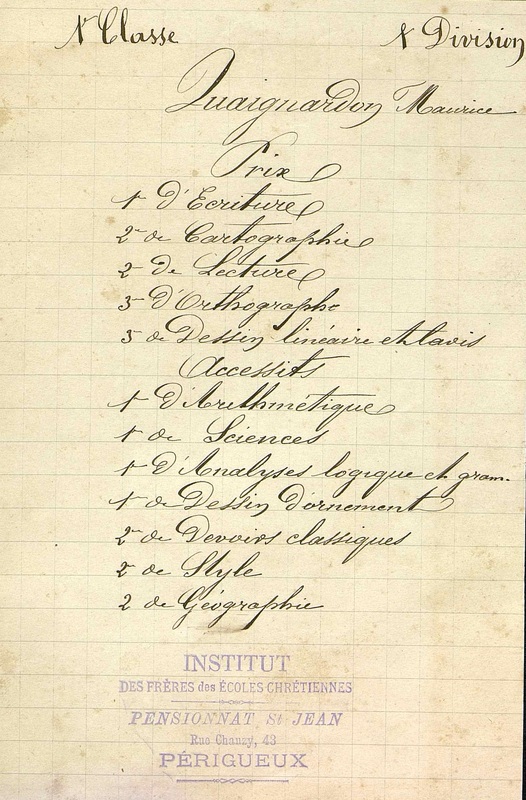 1e Classe 1e Division
Quaiguardon Maurice
Prix
1er d'Ecriture
2e de Cartographie
2 de Lecture
3 d'Orthographe
3 de Dessin linéaire et lavis
Accessits
1 d'Arithmétique
1 de Sciences
1 d'Analyses logique et gram.
1 de Dessin d'ornement
2e de Devoirs classiques
2 de Style
2 de Géographie
INSTITUT
DES FRÈRES des ÉCOLES CHRÉTIENNES
PENSIONNAT St JEAN
Rue Chanzy, 43
PÉRIGUEUX